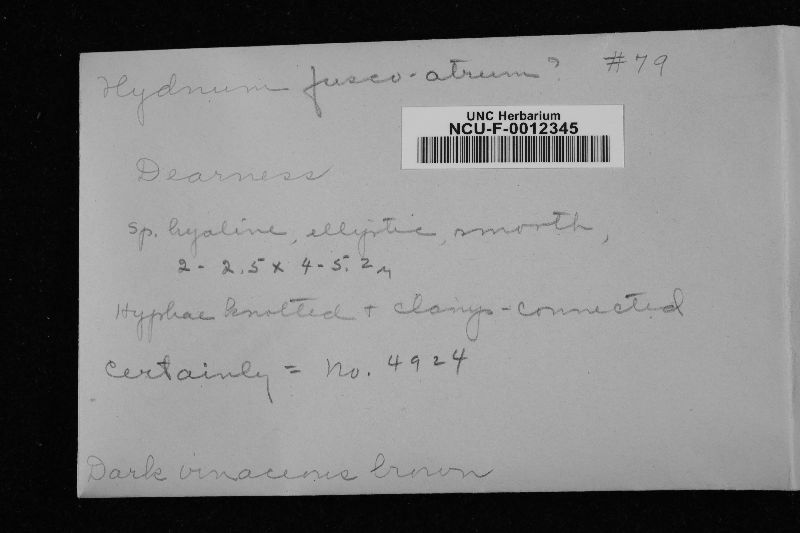 Hydnum fusco-atrum? #79
UNC Herbarium
NCU-F-0012345
Dearness
sp. hyaline, elliptic, smooth,
2 - 2.5 x 4 - 5.2 μ
Hyphae knotted + clamp-connected
Certainly = No. 4924
Dark vinaceous brown